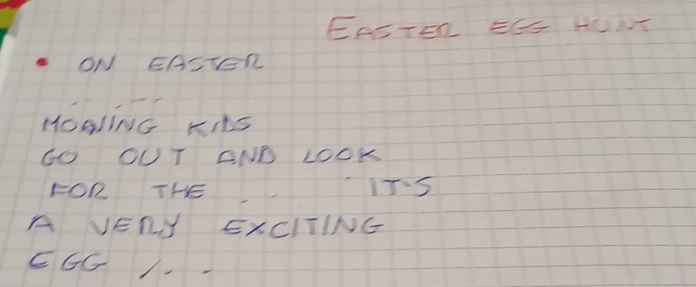 EASTER EGG HUNT
• ON EASTER
MORNING KIDS
GO OUT AND LOOK
FOR THE .. IT'S
A VERY EXCITING
EGG